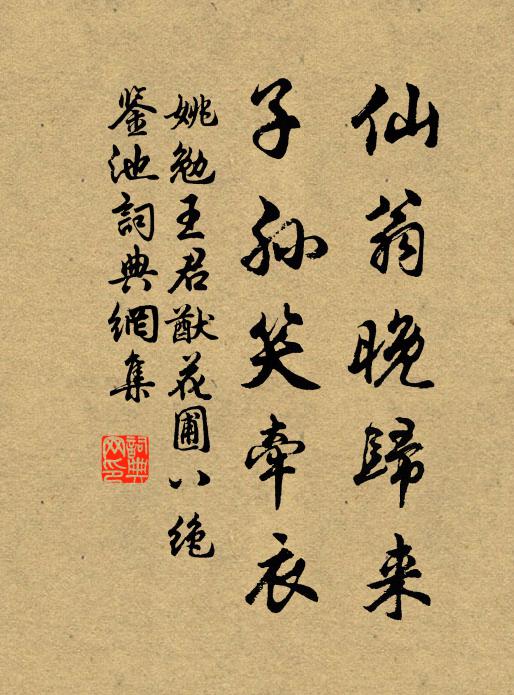 仙翁晚歸来
子孫笑牽衣
姚勉王君猷花圃八絶
鉴池詞典網集
詞典网印